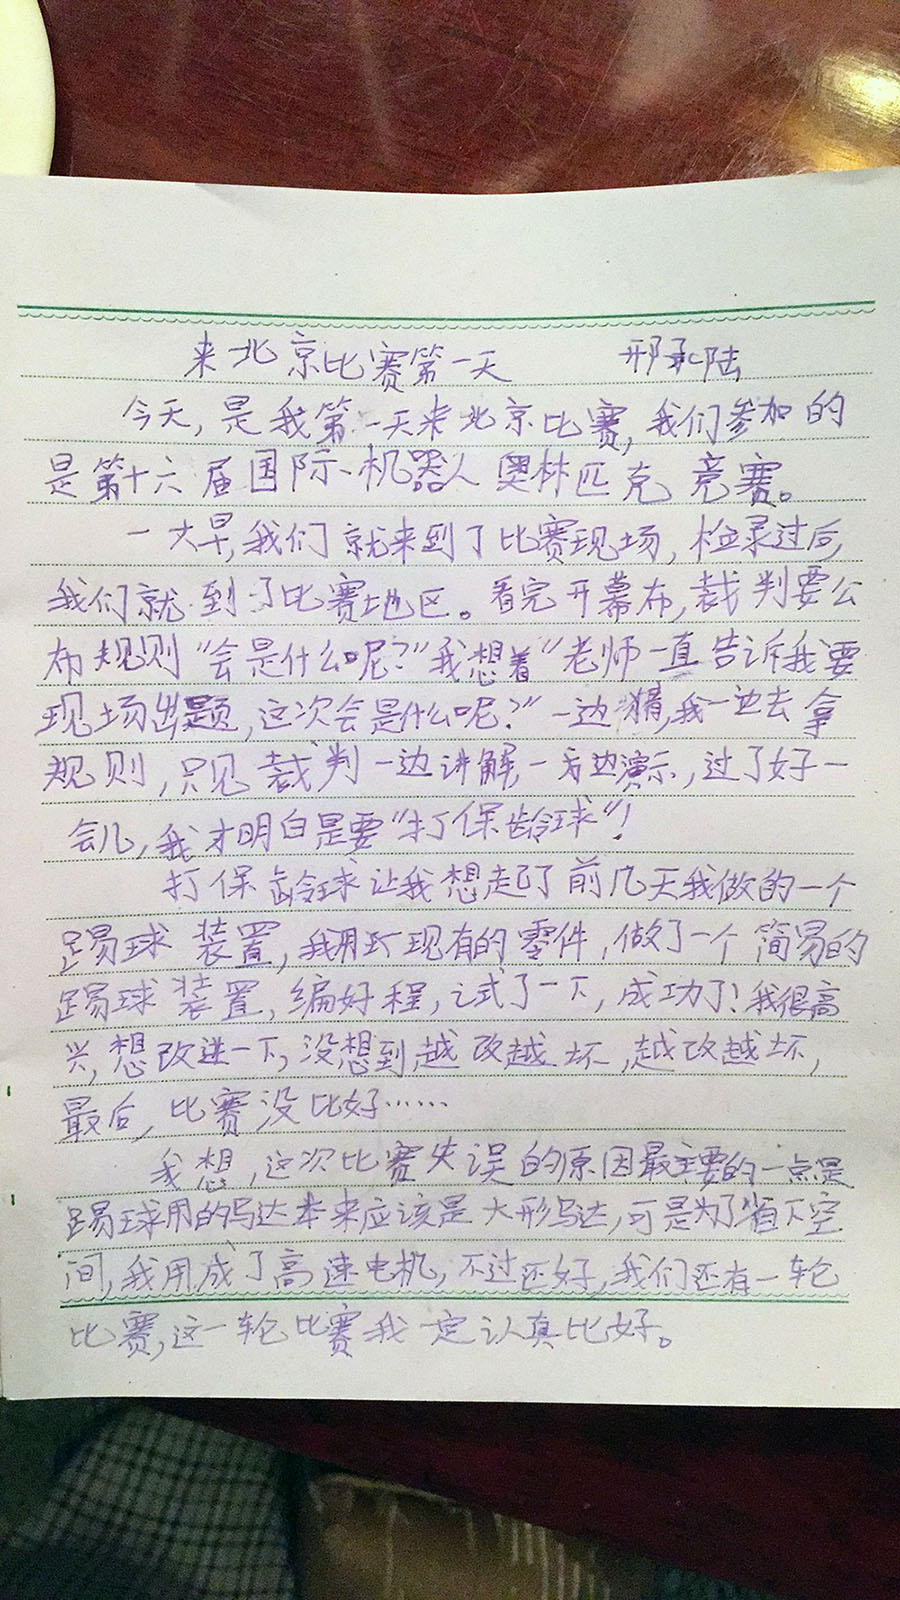 来北京比赛第一天 邢承陆
今天,是我第一天来北京比赛,我们参加的
是第十六届国际机器人奥林匹克竞赛。
一大早,我们就来到了比赛现场,检录过后,
我们就到了比赛地区。看完开幕布,裁判要公
布规则“会是什么呢?”我想着“老师一直告诉我要
现场出题,这次会是什么呢?”一边猜,我一边去拿
规则,只见裁判一边讲解,一边演示,过了好一
会儿,我才明白是要“打保龄球”!
打保龄球让我想起了前几天我做的一个
踢球装置,我用现有的零件,做了一个简易的
踢球装置,编好程,试了一下,成功了!我很高
兴,想改进一下,没想到越改越坏,越改越坏,
最后,比赛没比好……
我想,这次比赛失误的原因最主要的一点是
踢球用的马达本来应该是大形马达,可是为了省下空
间,我用成了高速电机,不过还好,我们还有一轮
比赛,这一轮比赛我一定认真比好。